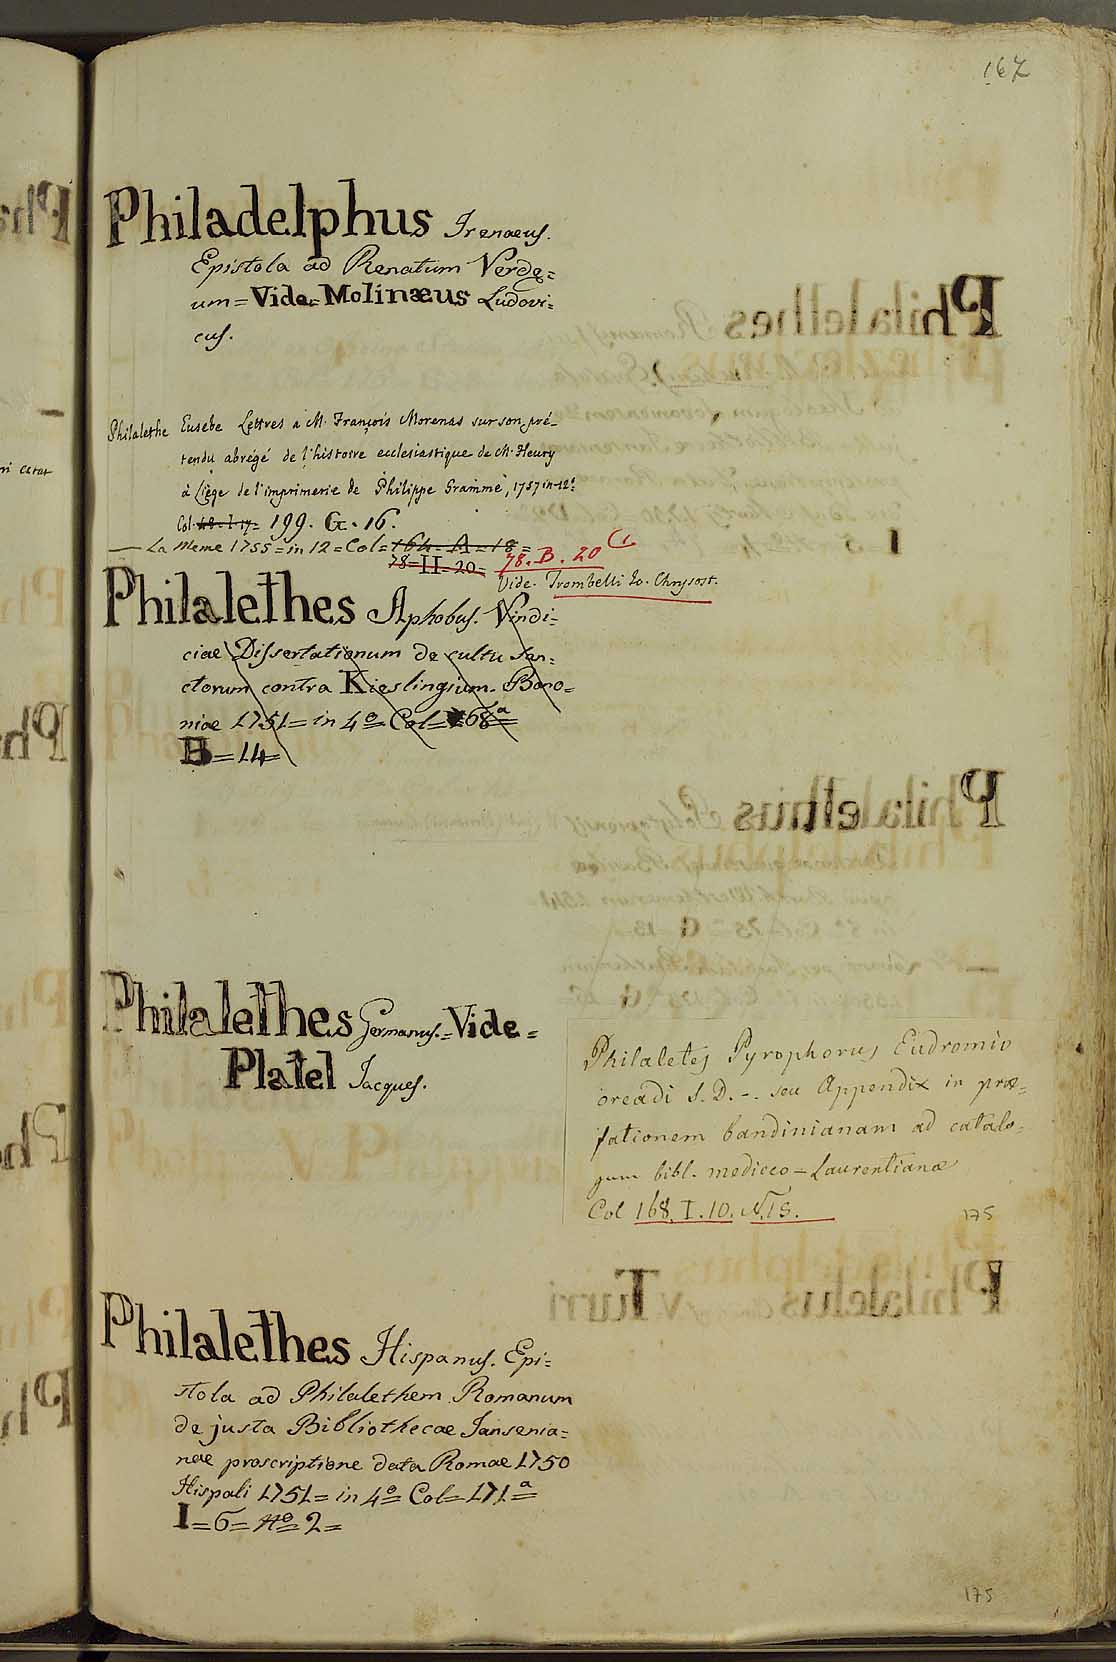 167
Philadelphus Irenaeus.
Epistola ad Renatum Verde=
um = Vide = Molinæus Ludovi=
cus.
Philalethe Eusebe Lettres a M. François Morenas sur son pré-
tendu abrégé de l'histoire ecclesiastique de M. Fleury
à Liège de l'imprimerie de Philippe Gramme, 1757 in-12°
Col. 48-I-17= 199. G. 16.
— La Meme 1755 = in 12 = Col = 164-A-18 =
78=II=20= 78. B. 20
Vide. Trombelli Io. Chrysost.
Philalethes Aphobus. Vindi=
ciae Dissertationum de cultu San=
ctorum contra Kieslingium. Bono=
niae 1751 = in 4° = Col = 168ª =
B = 14 =
Philalethes Germanus. = Vide =
Platel Jacques.
Philaletes Pyrophorus Eudromio
oreadi S. D. -. seu Appendix in præ=
fationem bandinianam ad catalo=
gum bibl. mediceo = Laurentianæ
Col 168. I. 10. N. 18.
175
Philalethes Hispanus. Epi=
stola ad Philalethem Romanum
de justa Bibliothecae Jansenia=
nae proscriptione data Romae 1750
Hispali 1751 = in 4° = Col = 171ª =
I = 6 = N° = 2 =
175